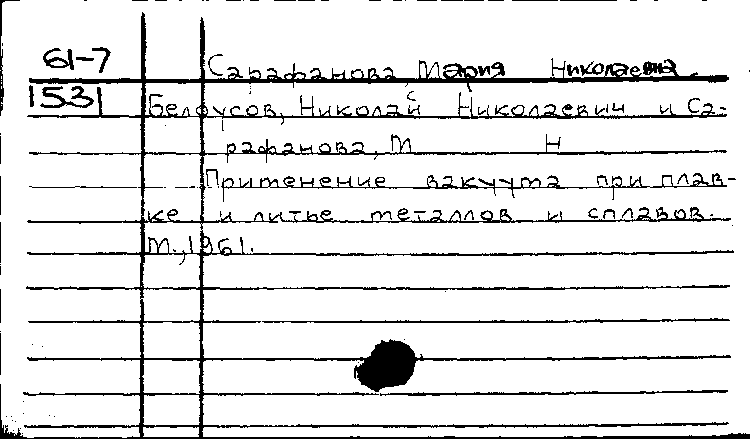 61-7 Сарафанова, Мария Николаевна.
1531 Белоусов, Николай Николаевич и Са-
рафанова, М Н
Применение вакуума при плав-
ке и литье металлов и сплавов.
М., 1961.